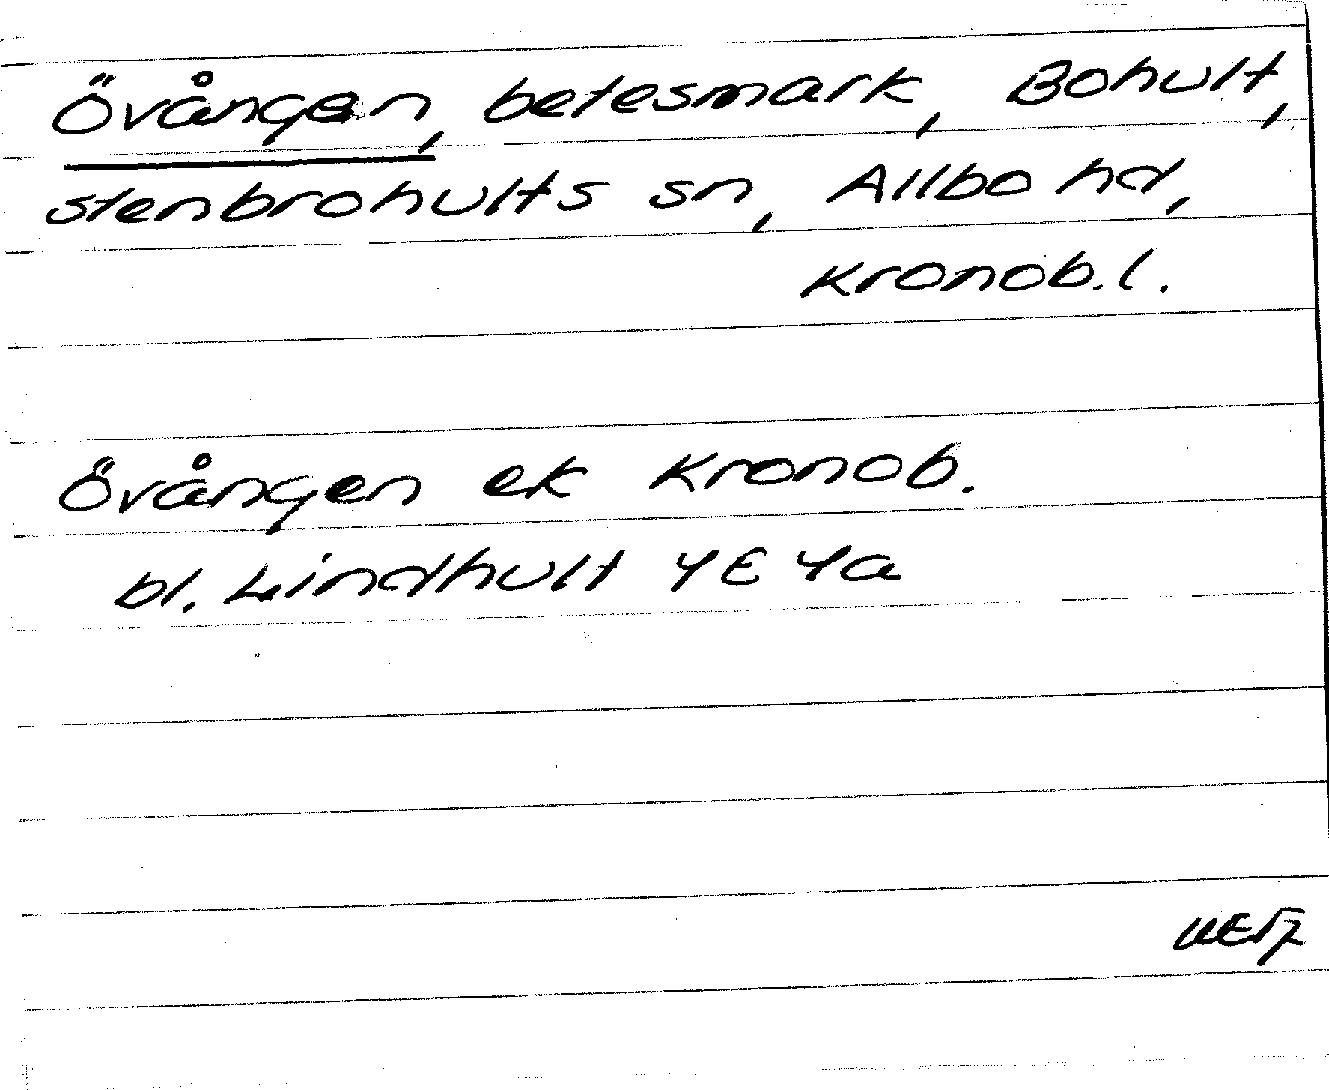 Övången, betesmark, Bohult,
stenbrohults sn, Allbo hd,
Kronob.l.
Övången ek Kronob.
bl. Lindhult 4E 4a